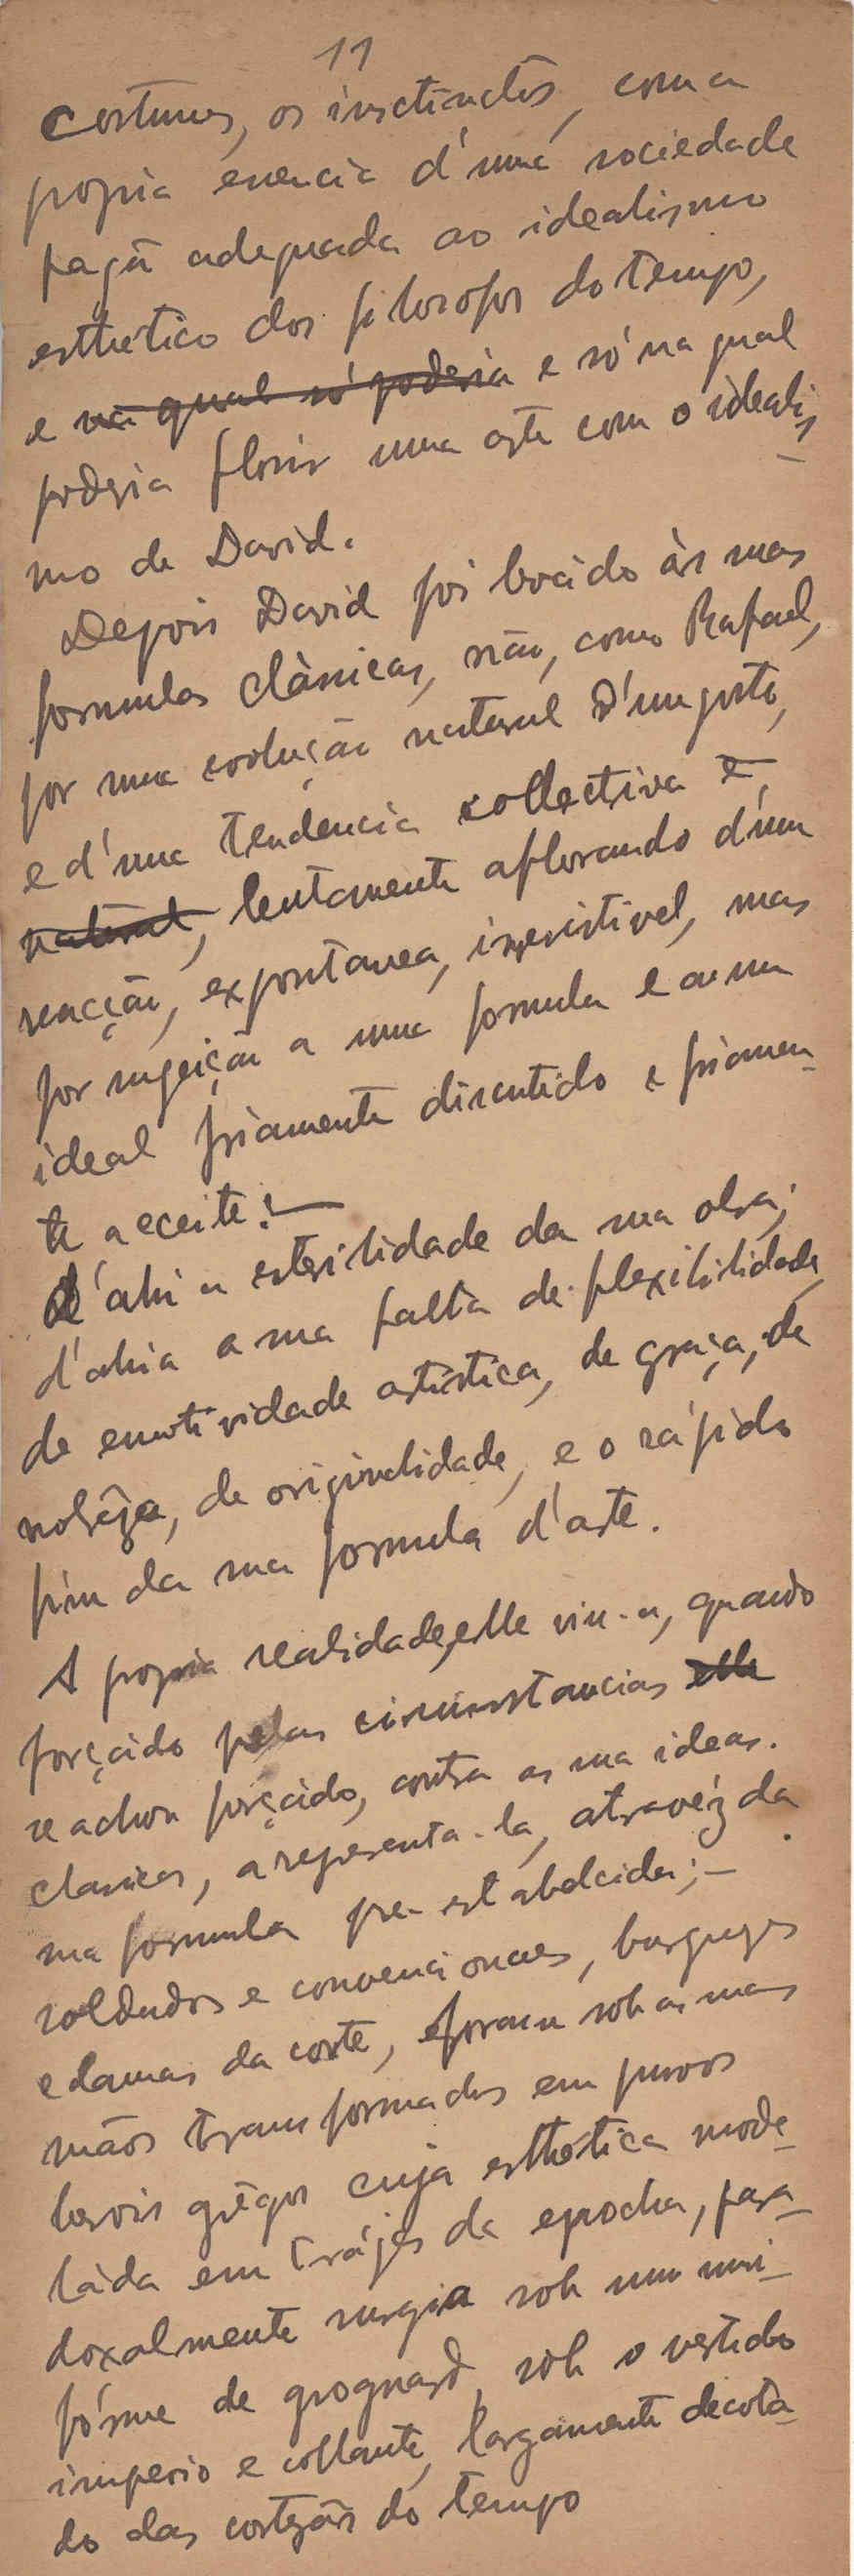 11
costumes, os insctinctos, com a
propria esencia d'uma sociedade
pagã adequada ao idealismo
esthetico dos filosofos do tempo,
e na qual só poderia e só na qual
poderia florir uma arte com o idealis
mo de David.
Depois David foi levádo ás suas
formulas clássicas, não, como Rafael,
por uma evolução natural d'um gosto,
e d'uma tendencia collectiva e
natural, lentamente aflorando d'uma
reacção, expontanea, irresistivel, mas
por sugeição a uma formula e a um
ideal friamente discutido e friamen-
te acceite!—
d'ahi a esterilidade da sua obra;
d'ahi a a sua falta de flexibilidade,
de emotividade artistica, de graça, de
nobrêza, de originalidade, e o rápido
fim da sua formula d'arte.
A propria realidade, elle viu-a, quando
forçádo pelas circumstancias elle
se achou forçádo, contra as sua ideas.
classicas, a representa-la, atravéz da
sua formula pre-estabelecida;—
soldados e convencionaes, burguezes
e damas da corte, foram sob as suas
mãos transformados em puros
herois grêgos cuja esthética mode-
láda em trájes da epocha, para-
doxalmente surgia sob um uni-
fórme de grognard, sob o vestido
imperio e collante, largamente decota-
do das cortezãs do tempo